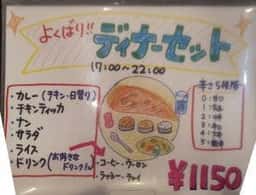 よくばり!!
ディナーセット
17:00〜22:00
・カレー(チキン・日替り)
・チキンティッカ
・ナン
・サラダ
・ライス
・ドリンク(お好きなドリンク
・コーヒー・ウーロン
・ラッシー・チャイ
辛さ5段階
0:
1:
2:
3:
4:
5:
¥1150